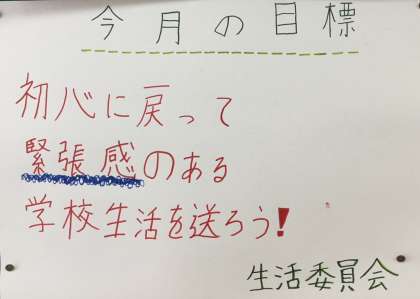 今月の目標
初心に戻って
緊張感のある
学校生活を送ろう!
生活委員会